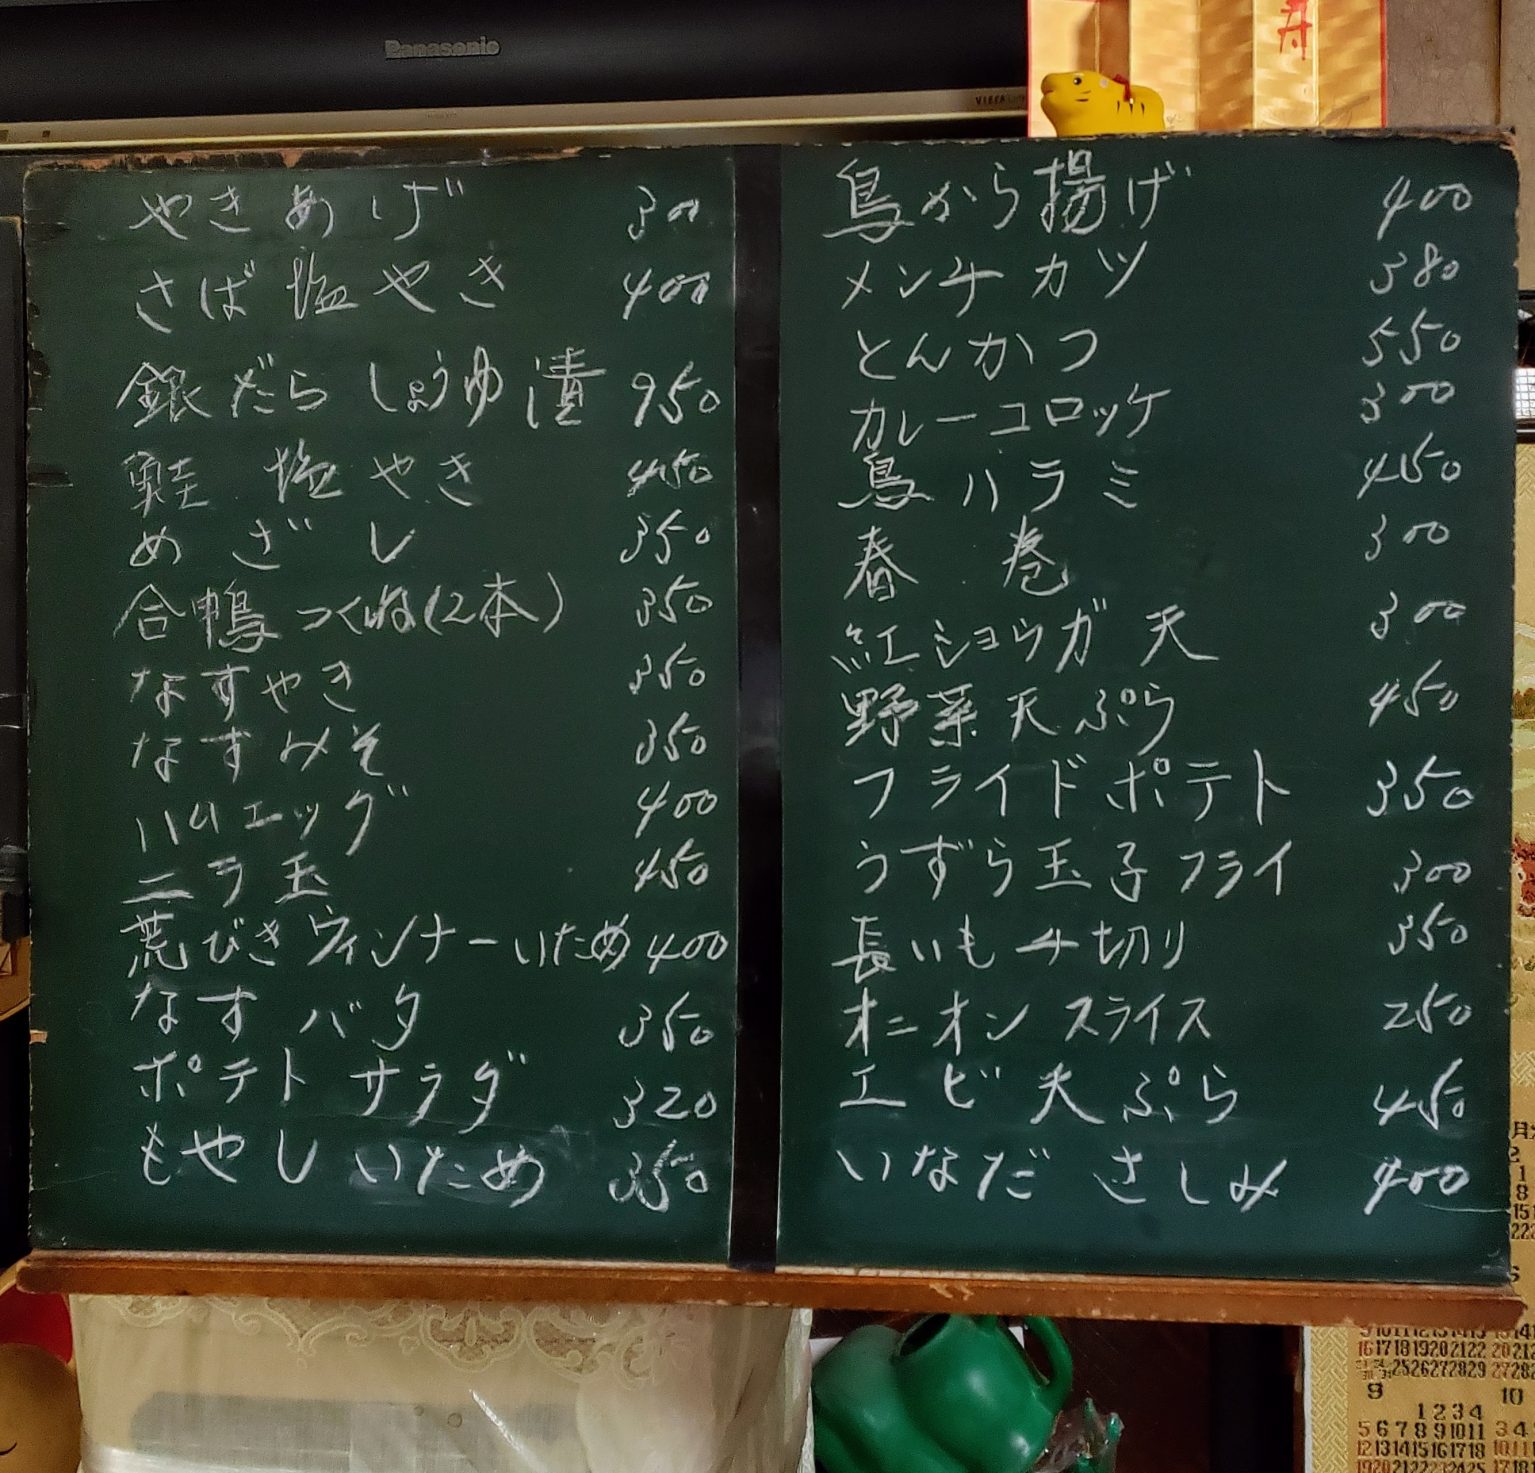 Panasonic
VIERA
寿
やきあげ 300
さば塩やき 400
銀だらしょうゆ漬 950
鮭 塩やき 450
めざし 350
合鴨つくね(2本) 350
なすやき 350
なすみそ 350
ハムエッグ 400
ニラ玉 450
荒びきウィンナーいため 400
なすバタ 350
ポテトサラダ 320
もやしいため 350
鳥から揚げ 400
メンチカツ 380
とんかつ 550
カレーコロッケ 300
鳥ハラミ 450
春 巻 300
紅ショウガ天 300
野菜天ぷら 450
フライドポテト 350
うずら玉子フライ 300
長いも千切り 350
オニオンスライス 250
エビ天ぷら 450
いなださしみ 400
9
1 2 3 4
5 6 7 8 9 10 11
12 13 14 15 16 17 18
10